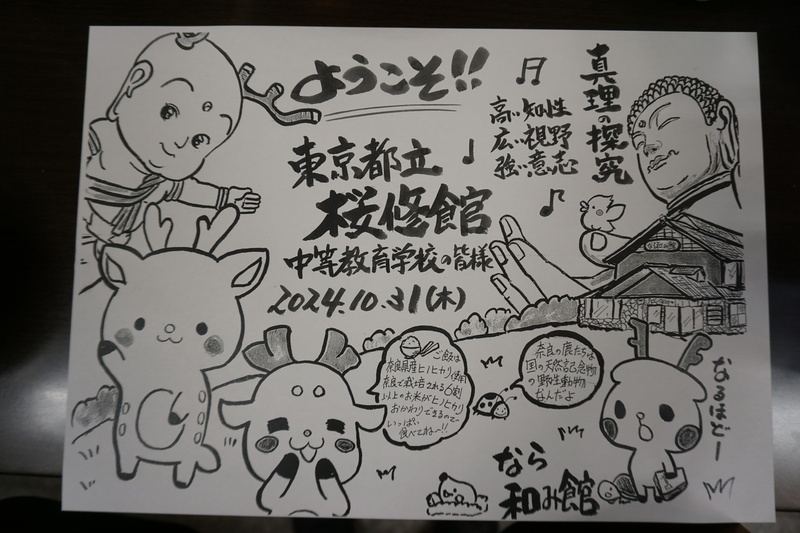 ようこそ!!
真理の探究
高い知性
広い視野
強い意志
東京都立
桜修館
中等教育学校の皆様
2024.10.31(木)
ご飯は
奈良県産ヒノヒカリ使用
奈良で栽培される6割
以上のお米がヒノヒカリ
おかわりできるので
いっぱい
食べてねー!!
奈良の鹿たちは
国の天然記念物
の野生動物
なんだよ
なるほどー
なら
和み館